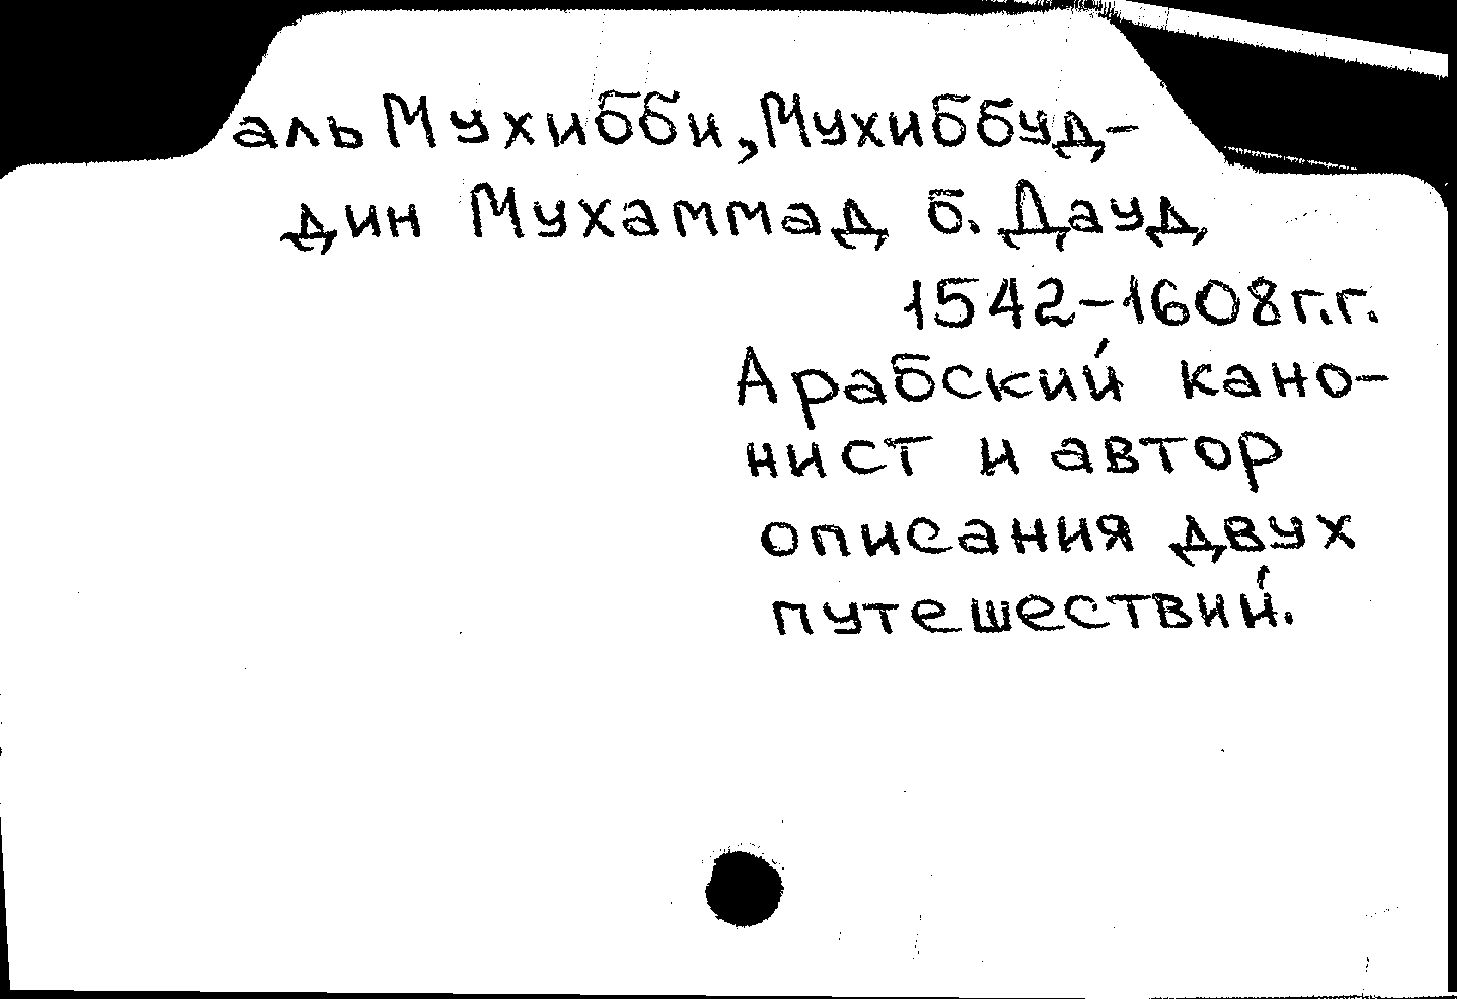 аль Мухибби, Мухиббуд-
дин Мухаммад б. Дауд
1542-1608 г.г.
Арабский кано-
нист и автор
описания двух
путешествий.